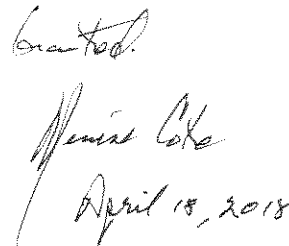 Granted.
Denise Cote
April 18, 2018